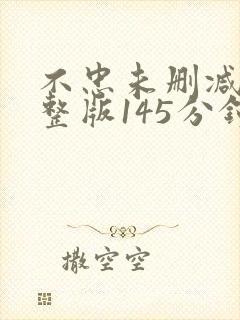 不忠未删减
整版145分钟
撒空空